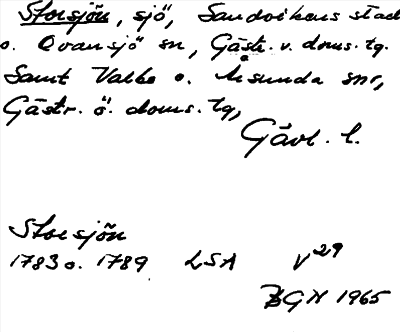 Storsjön, sjö, Sandvikens stad
o. Ovansjö sn, Gästr. v. doms. tg.
Samt Valbo o. Årsunda snr,
Gästr. ö. doms. tg,
Gävl. l.
Storsjön
1783 o. 1789 LSA V29
BGN 1965